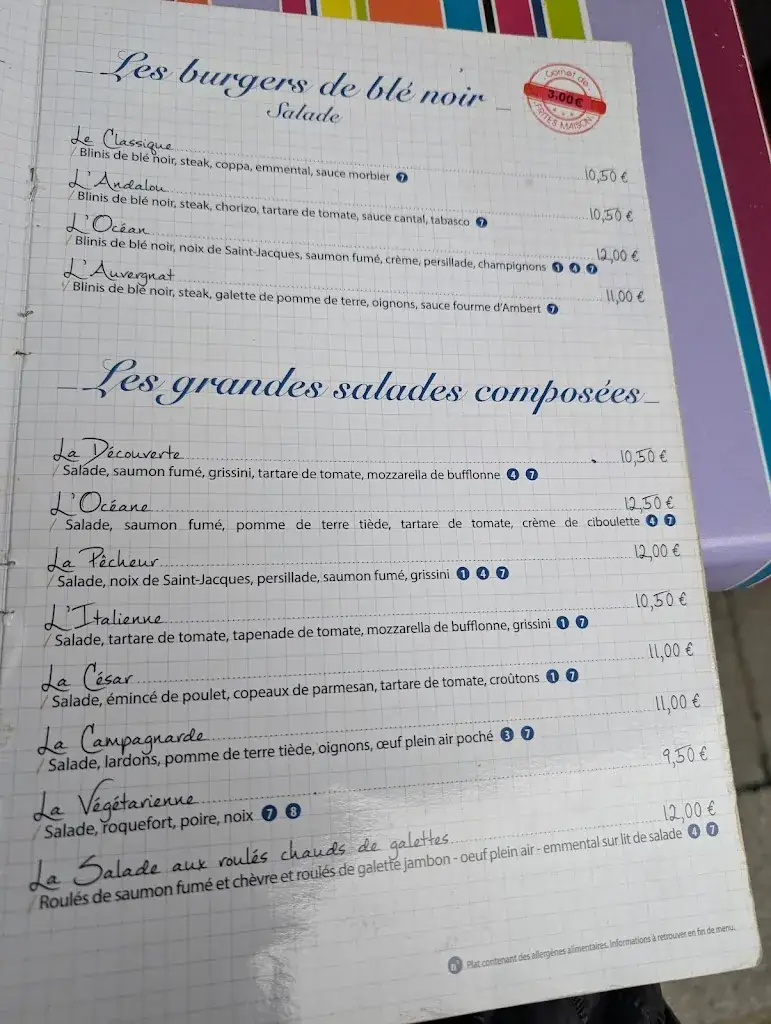 Les burgers de blé noir
Salade
Cornet de
3,00€
FRITES MAISON
Le Classique 10,50 €
Blinis de blé noir, steak, coppa, emmental, sauce morbier 7
L'Andalou 10,50 €
Blinis de blé noir, steak, chorizo, tartare de tomate, sauce cantal, tabasco 7
L'Océan 12,00 €
Blinis de blé noir, noix de Saint-Jacques, saumon fumé, crème, persillade, champignons 1 4 7
L'Auvergnat 11,00 €
Blinis de blé noir, steak, galette de pomme de terre, oignons, sauce fourme d'Ambert 7
Les grandes salades composées
La Découverte 10,50 €
Salade, saumon fumé, grissini, tartare de tomate, mozzarella de bufflonne 4 7
L'Océane 12,50 €
Salade, saumon fumé, pomme de terre tiède, tartare de tomate, crème de ciboulette 4 7
La Pêcheur 12,00 €
Salade, noix de Saint-Jacques, persillade, saumon fumé, grissini 1 4 7
L'Italienne 10,50 €
Salade, tartare de tomate, tapenade de tomate, mozzarella de bufflonne, grissini 1 7
La César 11,00 €
Salade, émincé de poulet, copeaux de parmesan, tartare de tomate, croûtons 1 7
La Campagnarde 11,00 €
Salade, lardons, pomme de terre tiède, oignons, œuf plein air poché 3 7
La Végétarienne 9,50 €
Salade, roquefort, poire, noix 7 8
La Salade aux roulés chauds de galettes 12,00 €
Roulés de saumon fumé et chèvre et roulés de galette jambon - oeuf plein air - emmental sur lit de salade 4 7
n° Plat contenant des allergènes alimentaires. Informations à retrouver en fin de menu.